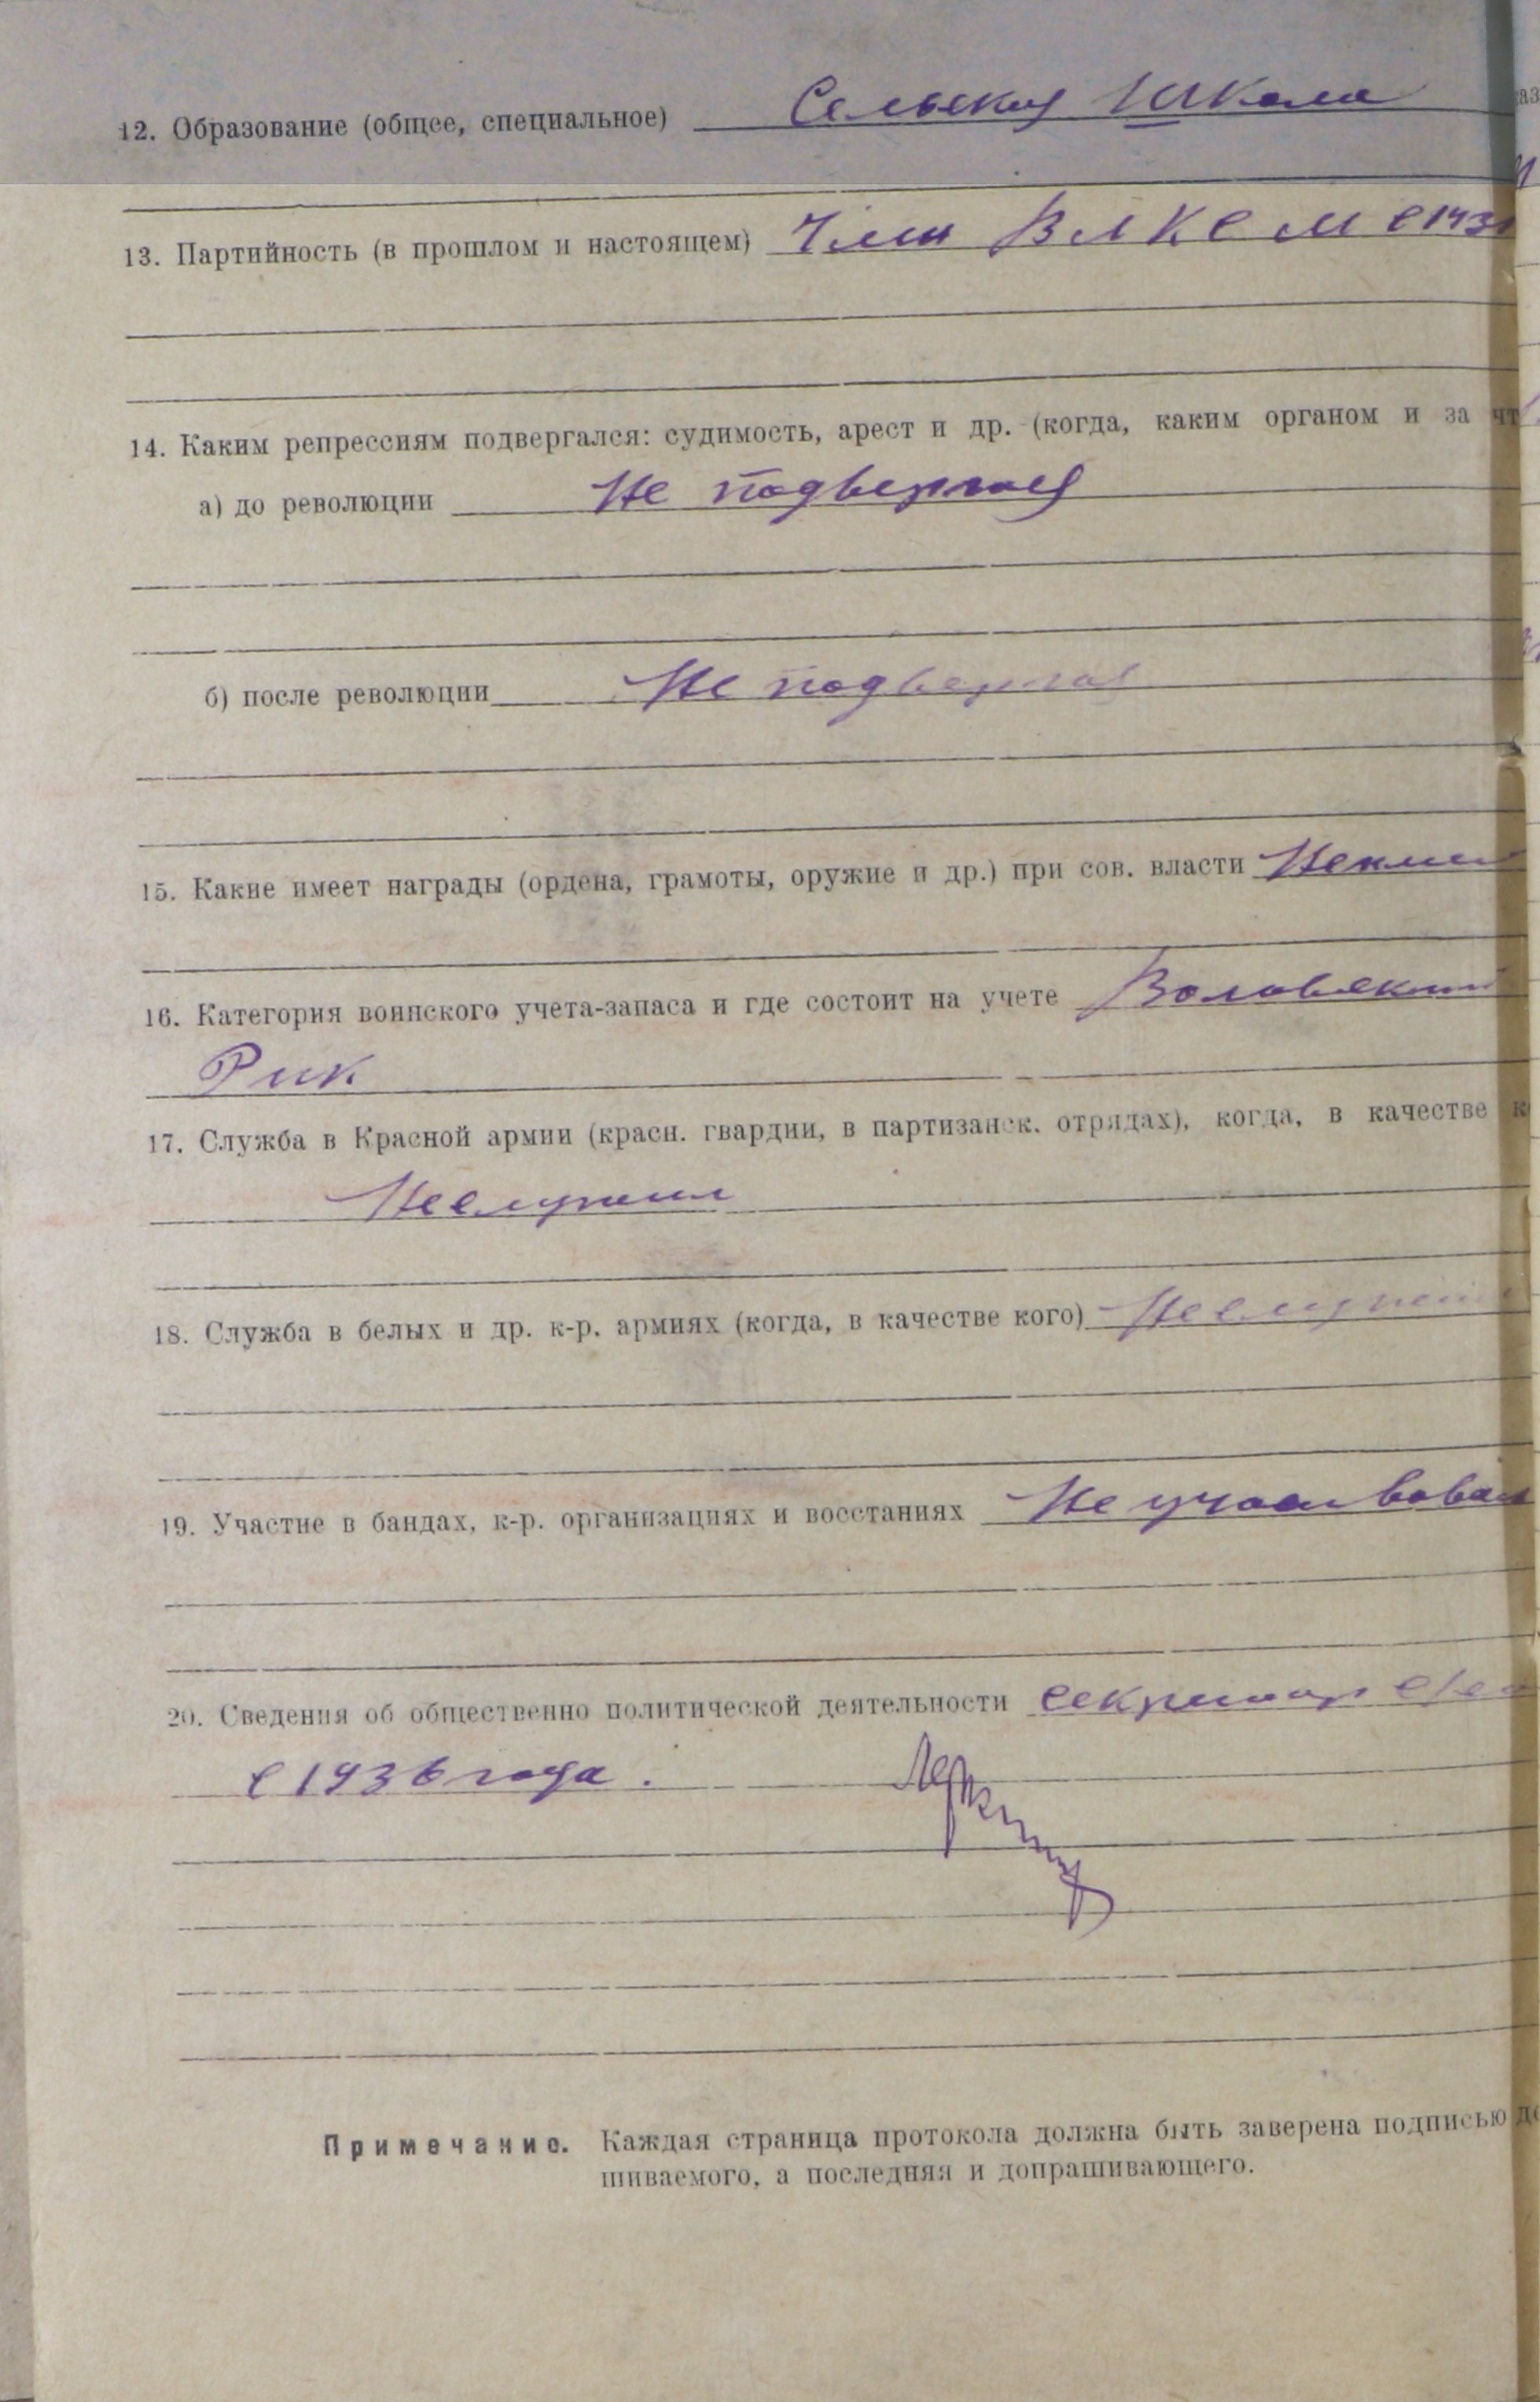 12. Образование (общее, специальное) Сельская школа
13. Партийность (в прошлом и настоящем) Член ВЛКСМ с 193
14. Каким репрессиям подвергался: судимость, арест и др. (когда, каким органом и за чт
а) до революции Не подвергался
б) после революции Не подвергался
15. Какие имеет награды (ордена, грамоты, оружие и др.) при сов. власти
16. Категория воинского учета-запаса и где состоит на учете Воловским
Рик
17. Служба в Красной армии (красн. гвардии, в партизанск. отрядах), когда, в качестве к
Не служил
18. Служба в белых и др. к-р. армиях (когда, в качестве кого) Не служил
19. Участие в бандах, к-р. организациях и восстаниях Не участвовал
20. Сведения об общественно политической деятельности секретарь
с 1936 года.
Примечание. Каждая страница протокола должна быть заверена подписью до
шиваемого, а последняя и допрашивающего.